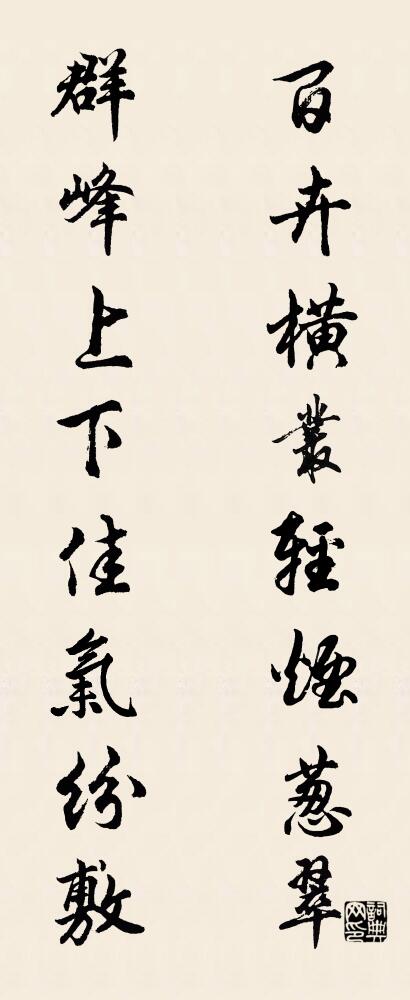 百卉橫叢輕煙葱翠
群峰上下佳氣紛敷
詞典网印